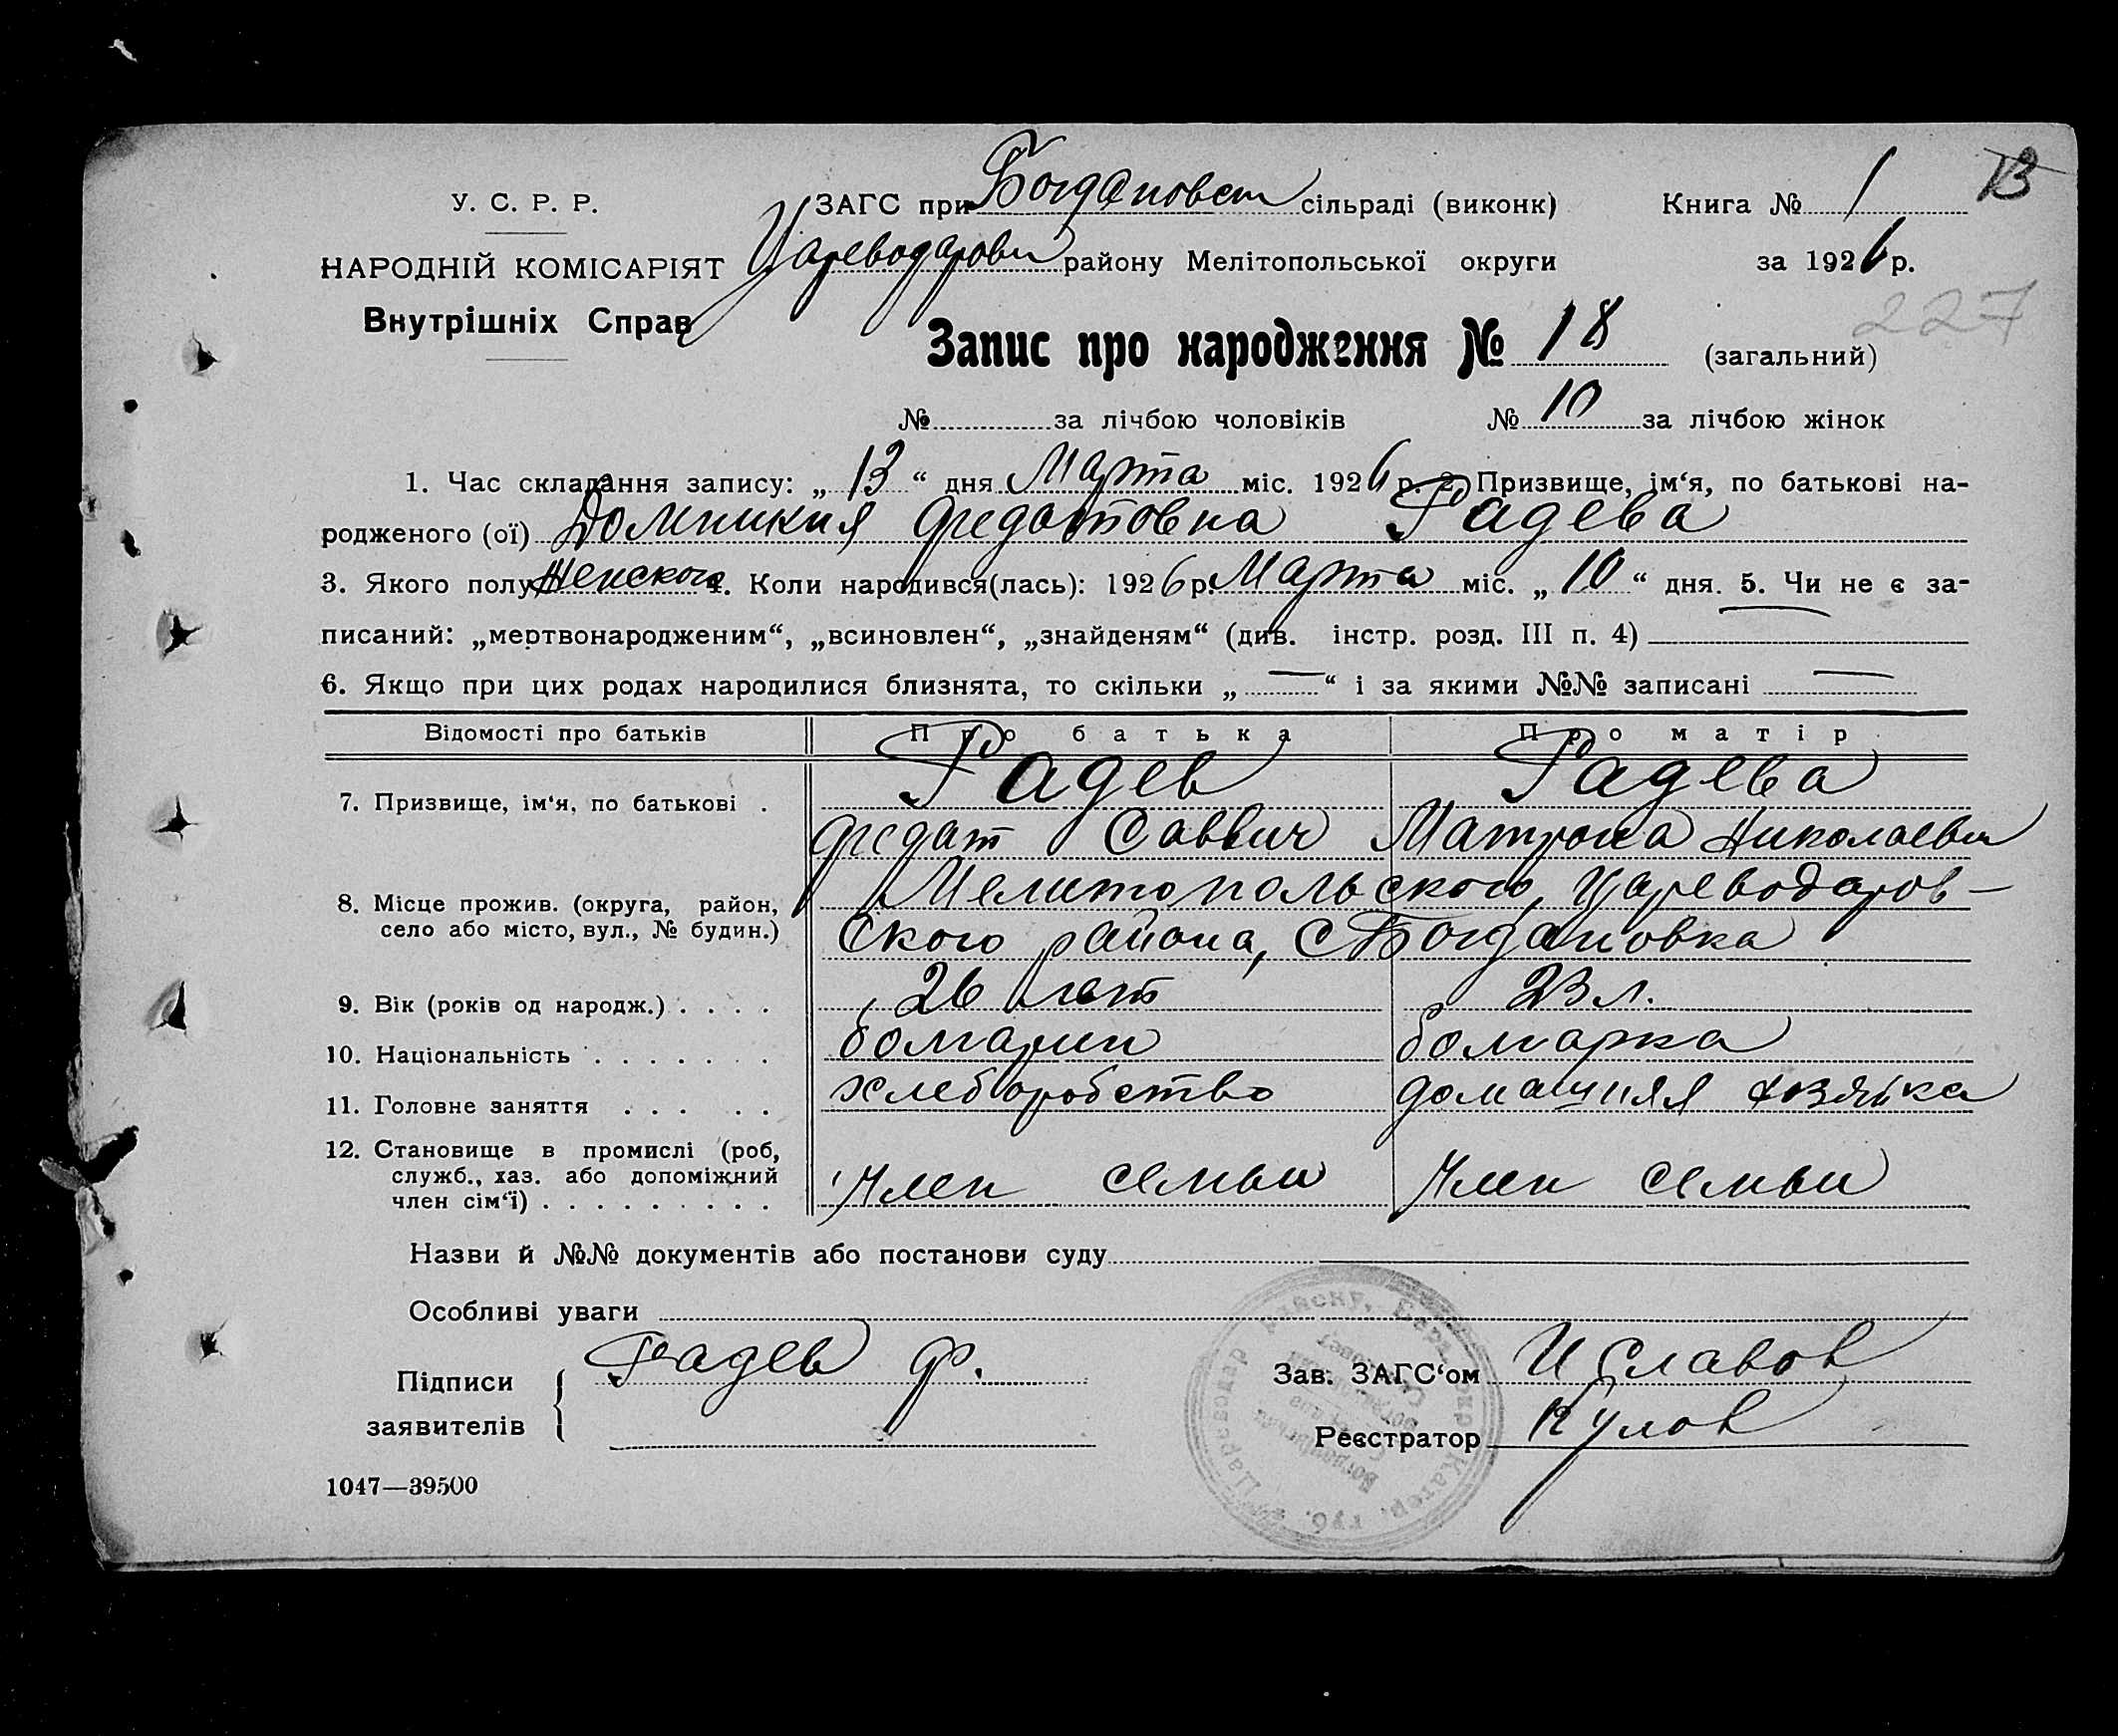 У. С. Р. Р.
НАРОДНІЙ КОМІСАРІЯТ
Внутрішніх Справ
ЗАГС при Богдановск сільраді (виконк)
Книга № 1
13
Цареводаровск району Мелітопольської округи
за 1926 р.
227
Запис про народження № 18 (загальний)
№ за лічбою чоловіків № 10 за лічбою жінок
1. Час складання запису: „ 13 “ дня Марта міс. 1926 р. 2. Призвище, ім‘я, по батькові на-
родженого (ої) Домникия Федотовна Радева
3. Якого полу Женского 4. Коли народився(лась): 1926 р. Марта міс. „ 10 “ дня. 5. Чи не є за-
писаний: „мертвонародженим“, „всиновлен“, „знайденям“ (див. інстр. розд. III п. 4)
6. Якщо при цих родах народилися близнята, то скільки „ — “ і за якими №№ записані —
Відомості про батьків Про батька Про матір
7. Призвище, ім‘я, по батькові . Радев Радева
Федат Саввич Матрона Николаевн
8. Місце прожив. (округа, район,
село або місто, вул., № будин.)
Мелитопольского, Цареводаров-
ского района, с Богдановка
9. Вік (років од народж.) . . . . 26 лет 23 л.
10. Національність . . . . . . . болгарин болгарка
11. Головне заняття . . . . . хлеборобство домашняя хозяйка
12. Становище в промислі (роб,
служб., хаз. або допоміжний
член сім‘ї) . . . . . . . . . Член семьи Член семьи
Назви й №№ документів або постанови суду
Особливі уваги
Підписи
заявителів
Радев Ф.
Зав. ЗАГС‘ом И Славов
Реєстратор Кулов
1047—39500